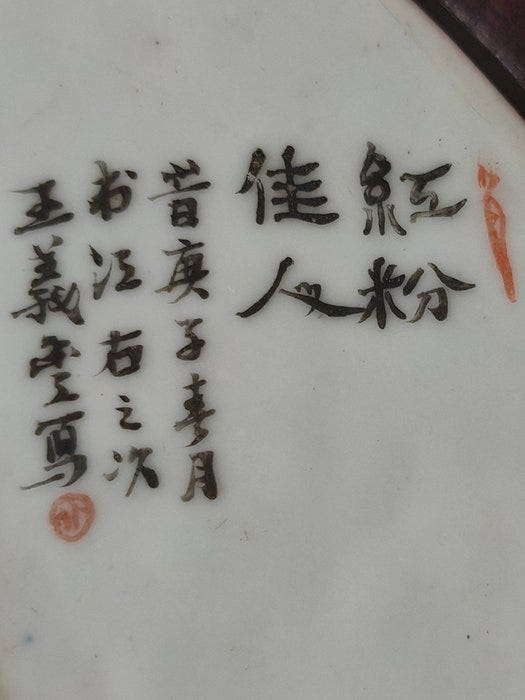 紅粉
佳人
昔庚子春月
书江右之次
王義寫